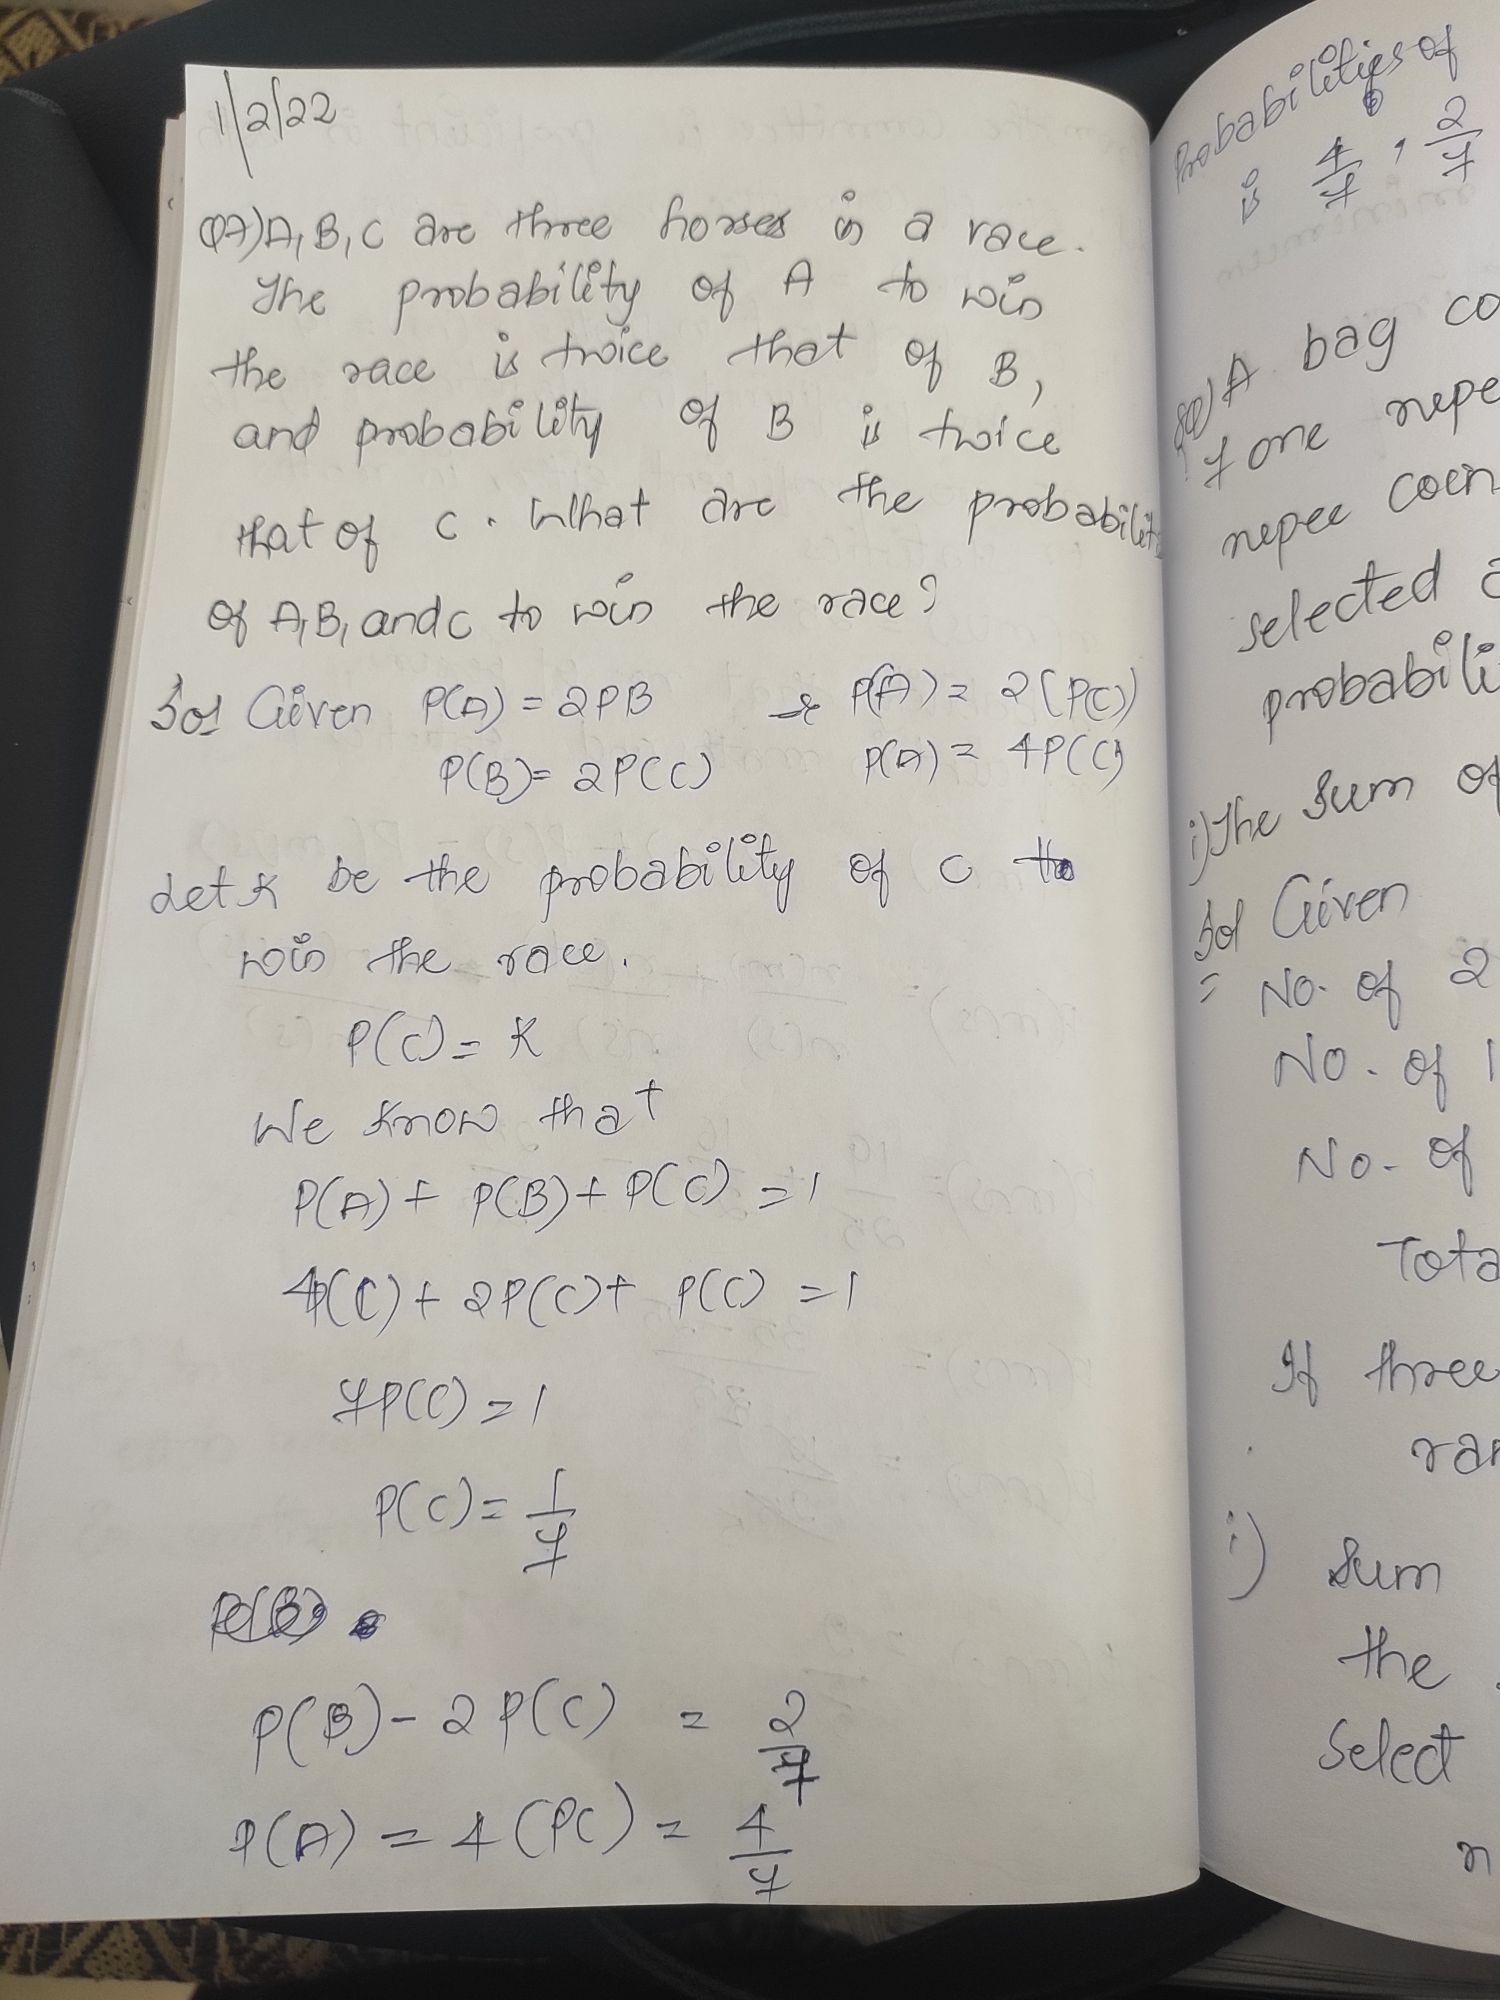 1/2/22
Q7) A, B, C are three horses in a race.
The probability of A to win
the race is twice that of B,
and probability of B is twice
that of C. What are the probabilit
of A, B, and C to win the race?
Sol Given P(A) = 2PB P(A) = 2(P(C))
P(B) = 2P(C) P(A) = 4P(C)
Let K be the probability of C to
win the race.
P(C) = K
We know that
P(A) + P(B) + P(C) = 1
4P(C) + 2P(C) + P(C) = 1
7P(C) = 1
P(C) = 1/7
P(B) - 2P(C) = 2/7
P(A) = 4(PC) = 4/7
Probabilities of
is 4/7, 2/7
8Q) A bag co
7 one rupe
rupee coin
selected a
probabili
i) The Sum of
Sol Given
= No. of 2
No. of 1
No. of
Tota
If three
ran
i) Sum
the
Select
n